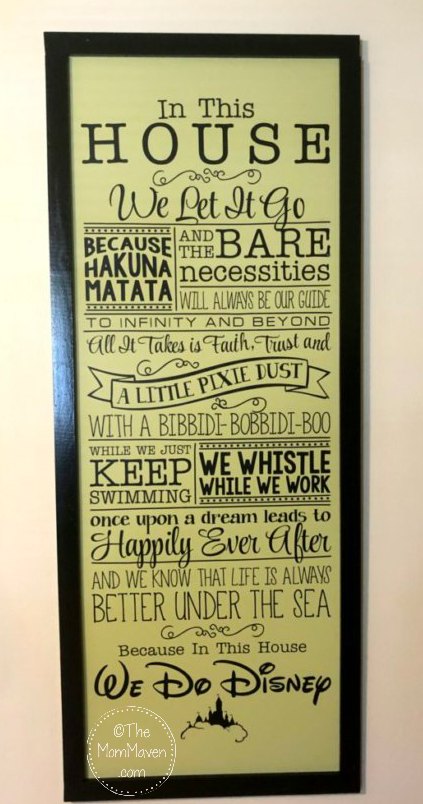 In This
HOUSE
We Let It Go
BECAUSE
HAKUNA
MATATA
AND
THE BARE
necessities
WILL ALWAYS BE OUR GUIDE
TO INFINITY AND BEYOND
All It Takes is Faith, Trust and
A LITTLE PIXIE DUST
WITH A BIBBIDI-BOBBIDI-BOO
WHILE WE JUST
KEEP
SWIMMING
WE WHISTLE
WHILE WE WORK
once upon a dream leads to
Happily Ever After
AND WE KNOW THAT LIFE IS ALWAYS
BETTER UNDER THE SEA
Because In This House
We Do Disney
©The
MomMaven
.com